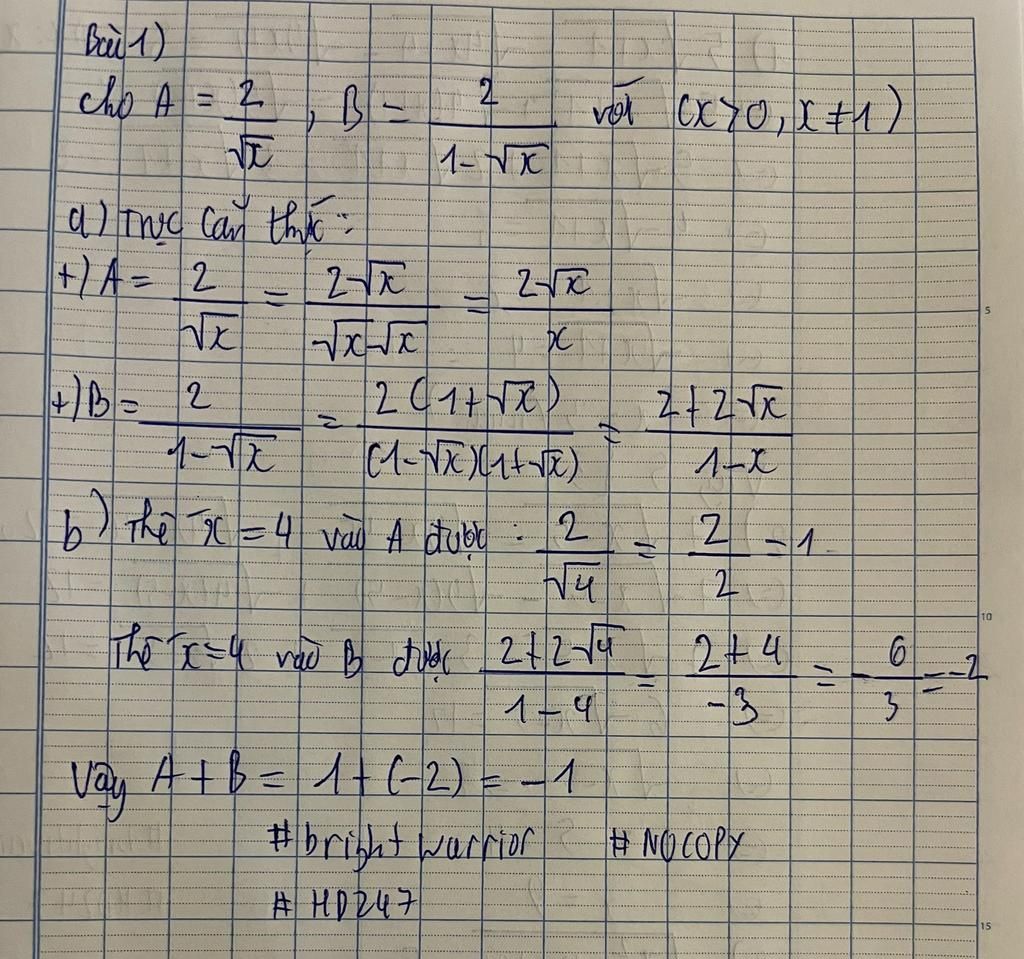 Bài 1)
cho A = 2/√x , B = 2/(1-√x) với (x>0, x≠1)
a) Trục căn thức:
+) A = 2/√x = 2√x/(√x√x) = 2√x/x
+) B = 2/(1-√x) = 2(1+√x)/((1-√x)(1+√x)) = (2+2√x)/(1-x)
b) Thế x=4 vào A được: 2/√4 = 2/2 = 1.
Thế x=4 vào B được (2+2√4)/(1-4) = (2+4)/(-3) = -6/3 = -2
Vậy A+B = 1+(-2) = -1
#bright warrior #NOCOPY
#HD247
5
10
15